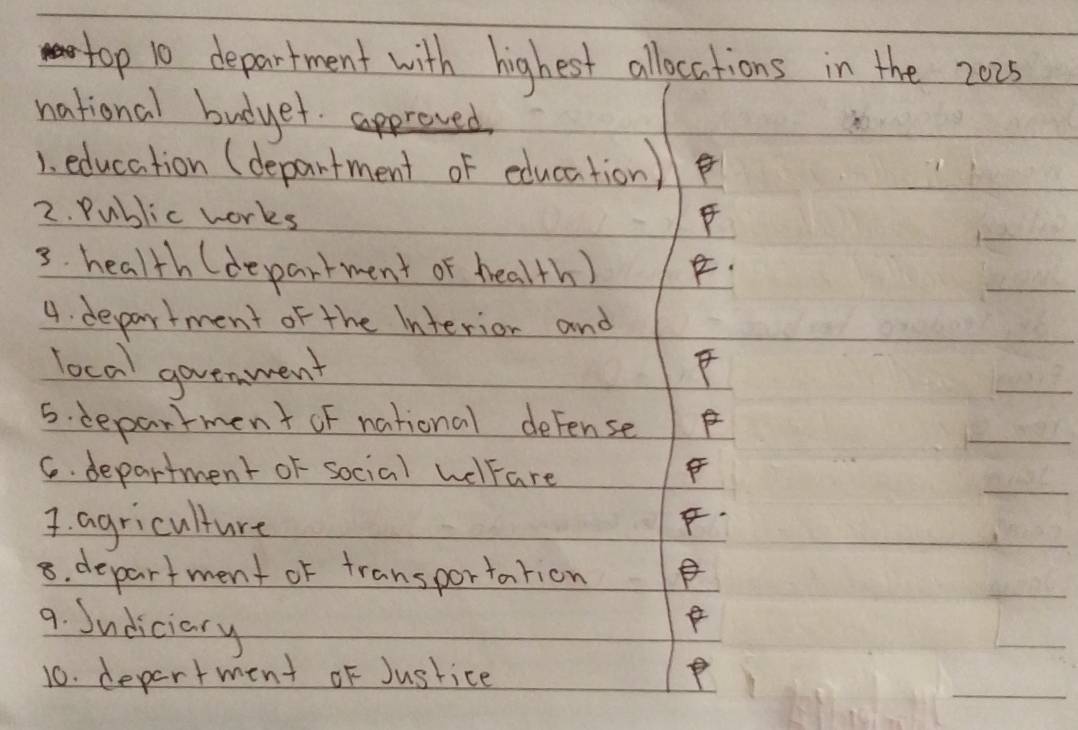 top 10 department with highest allocations in the 2025
national budyet. approved
1. education (department of education) ₱
2. Public works ₱
3. health (department of health) ₱.
4. department of the Interior and
local government ₱
5. department of national defense ₱
6. department of social welfare ₱
7. agriculture ₱.
8. department of transportation ₱
9. Judiciary ₱
10. department of Justice ₱